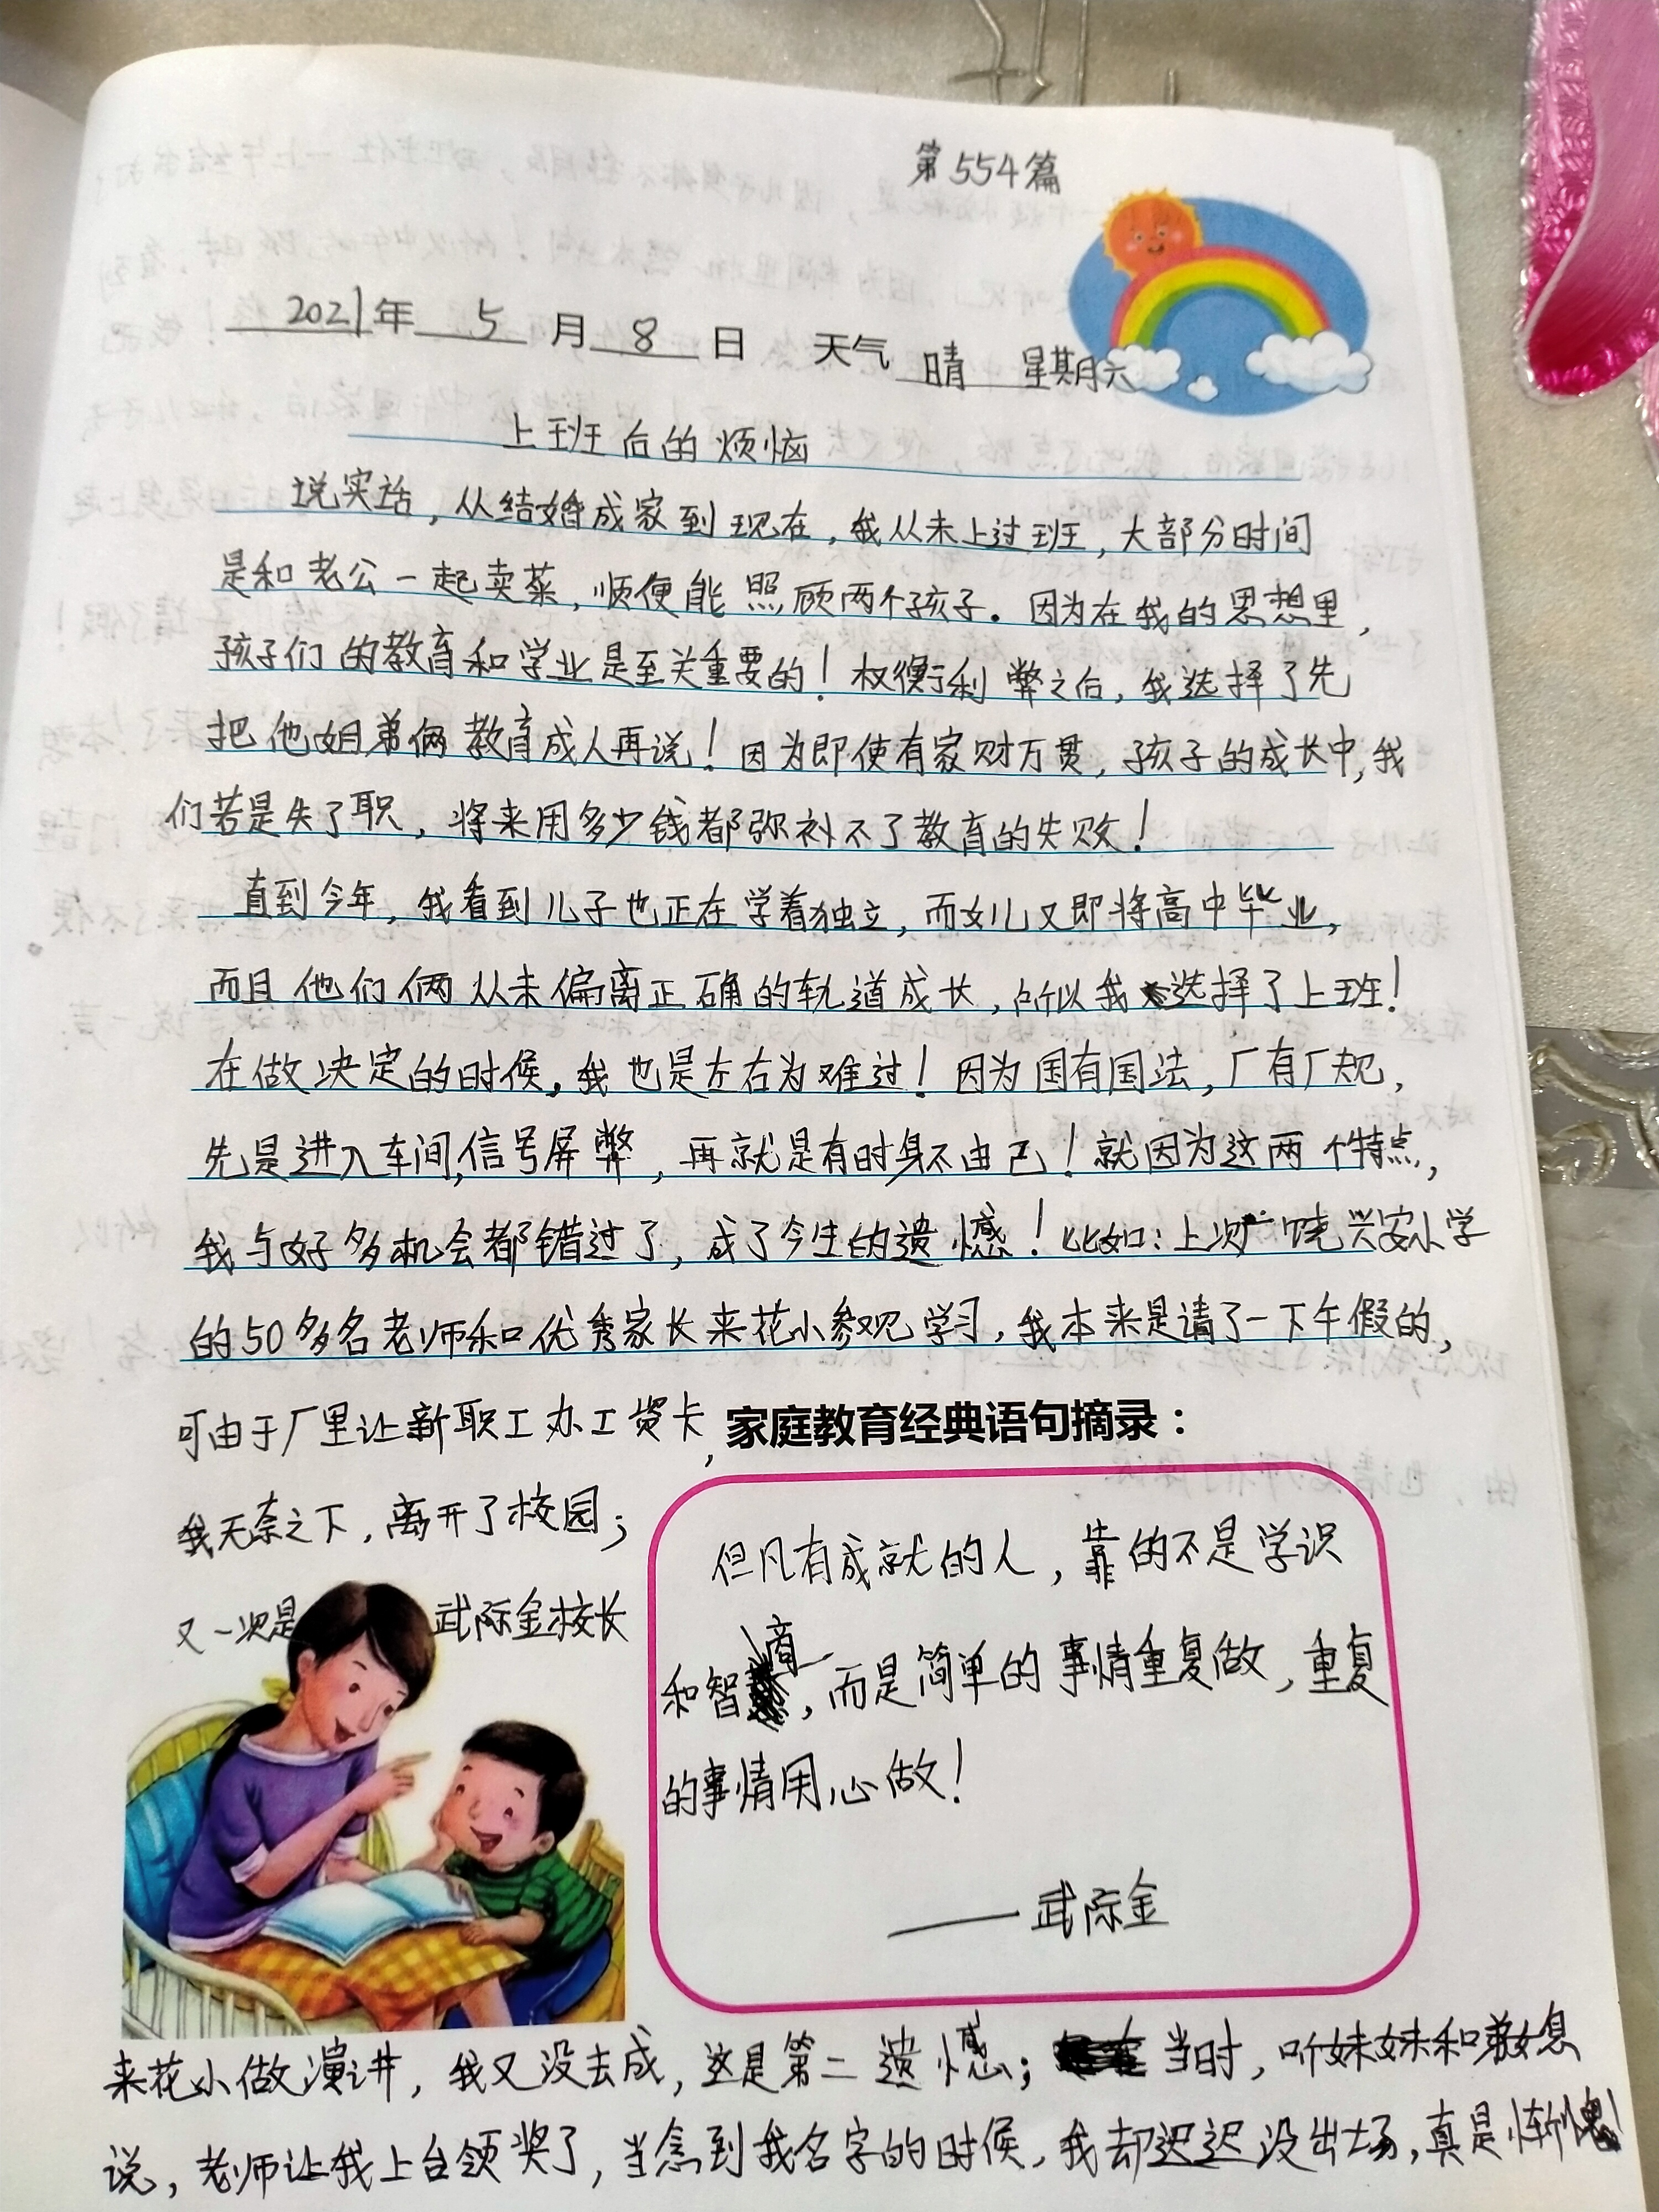 第554篇
2021年 5 月 8 日 天气 晴 星期六
上班后的烦恼
说实话，从结婚成家到现在，我从未上过班，大部分时间
是和老公一起卖菜，顺便能照顾两个孩子。因为在我的思想里，
孩子们的教育和学业是至关重要的！权衡利弊之后，我选择了先
把他姐弟俩教育成人再说！因为即使有家财万贯，孩子的成长中，我
们若是失了职，将来用多少钱都弥补不了教育的失败！
直到今年，我看到儿子也正在学着独立，而女儿又即将高中毕业，
而且他们俩从未偏离正确的轨道成长，所以我选择了上班！
在做决定的时候，我也是左右为难过！因为国有国法，厂有厂规，
先是进入车间，信号屏弊，再就是有时身不由己！就因为这两个特点，
我与好多机会都错过了，成了今生的遗憾！比如：上次广饶兴安小学
的50多名老师和优秀家长来花小参观学习，我本来是请了一下午假的，
可由于厂里让新职工办工资卡，
我无奈之下，离开了校园；
又一次是武际金校长
家庭教育经典语句摘录：
但凡有成就的人，靠的不是学识
和智商，而是简单的事情重复做，重复
的事情用心做！
——武际金
来花小做演讲，我又没去成，这是第二遗憾；当时，听妹妹和弟媳
说，老师让我上台领奖了，当念到我名字的时候，我却迟迟没出场，真是惭愧！